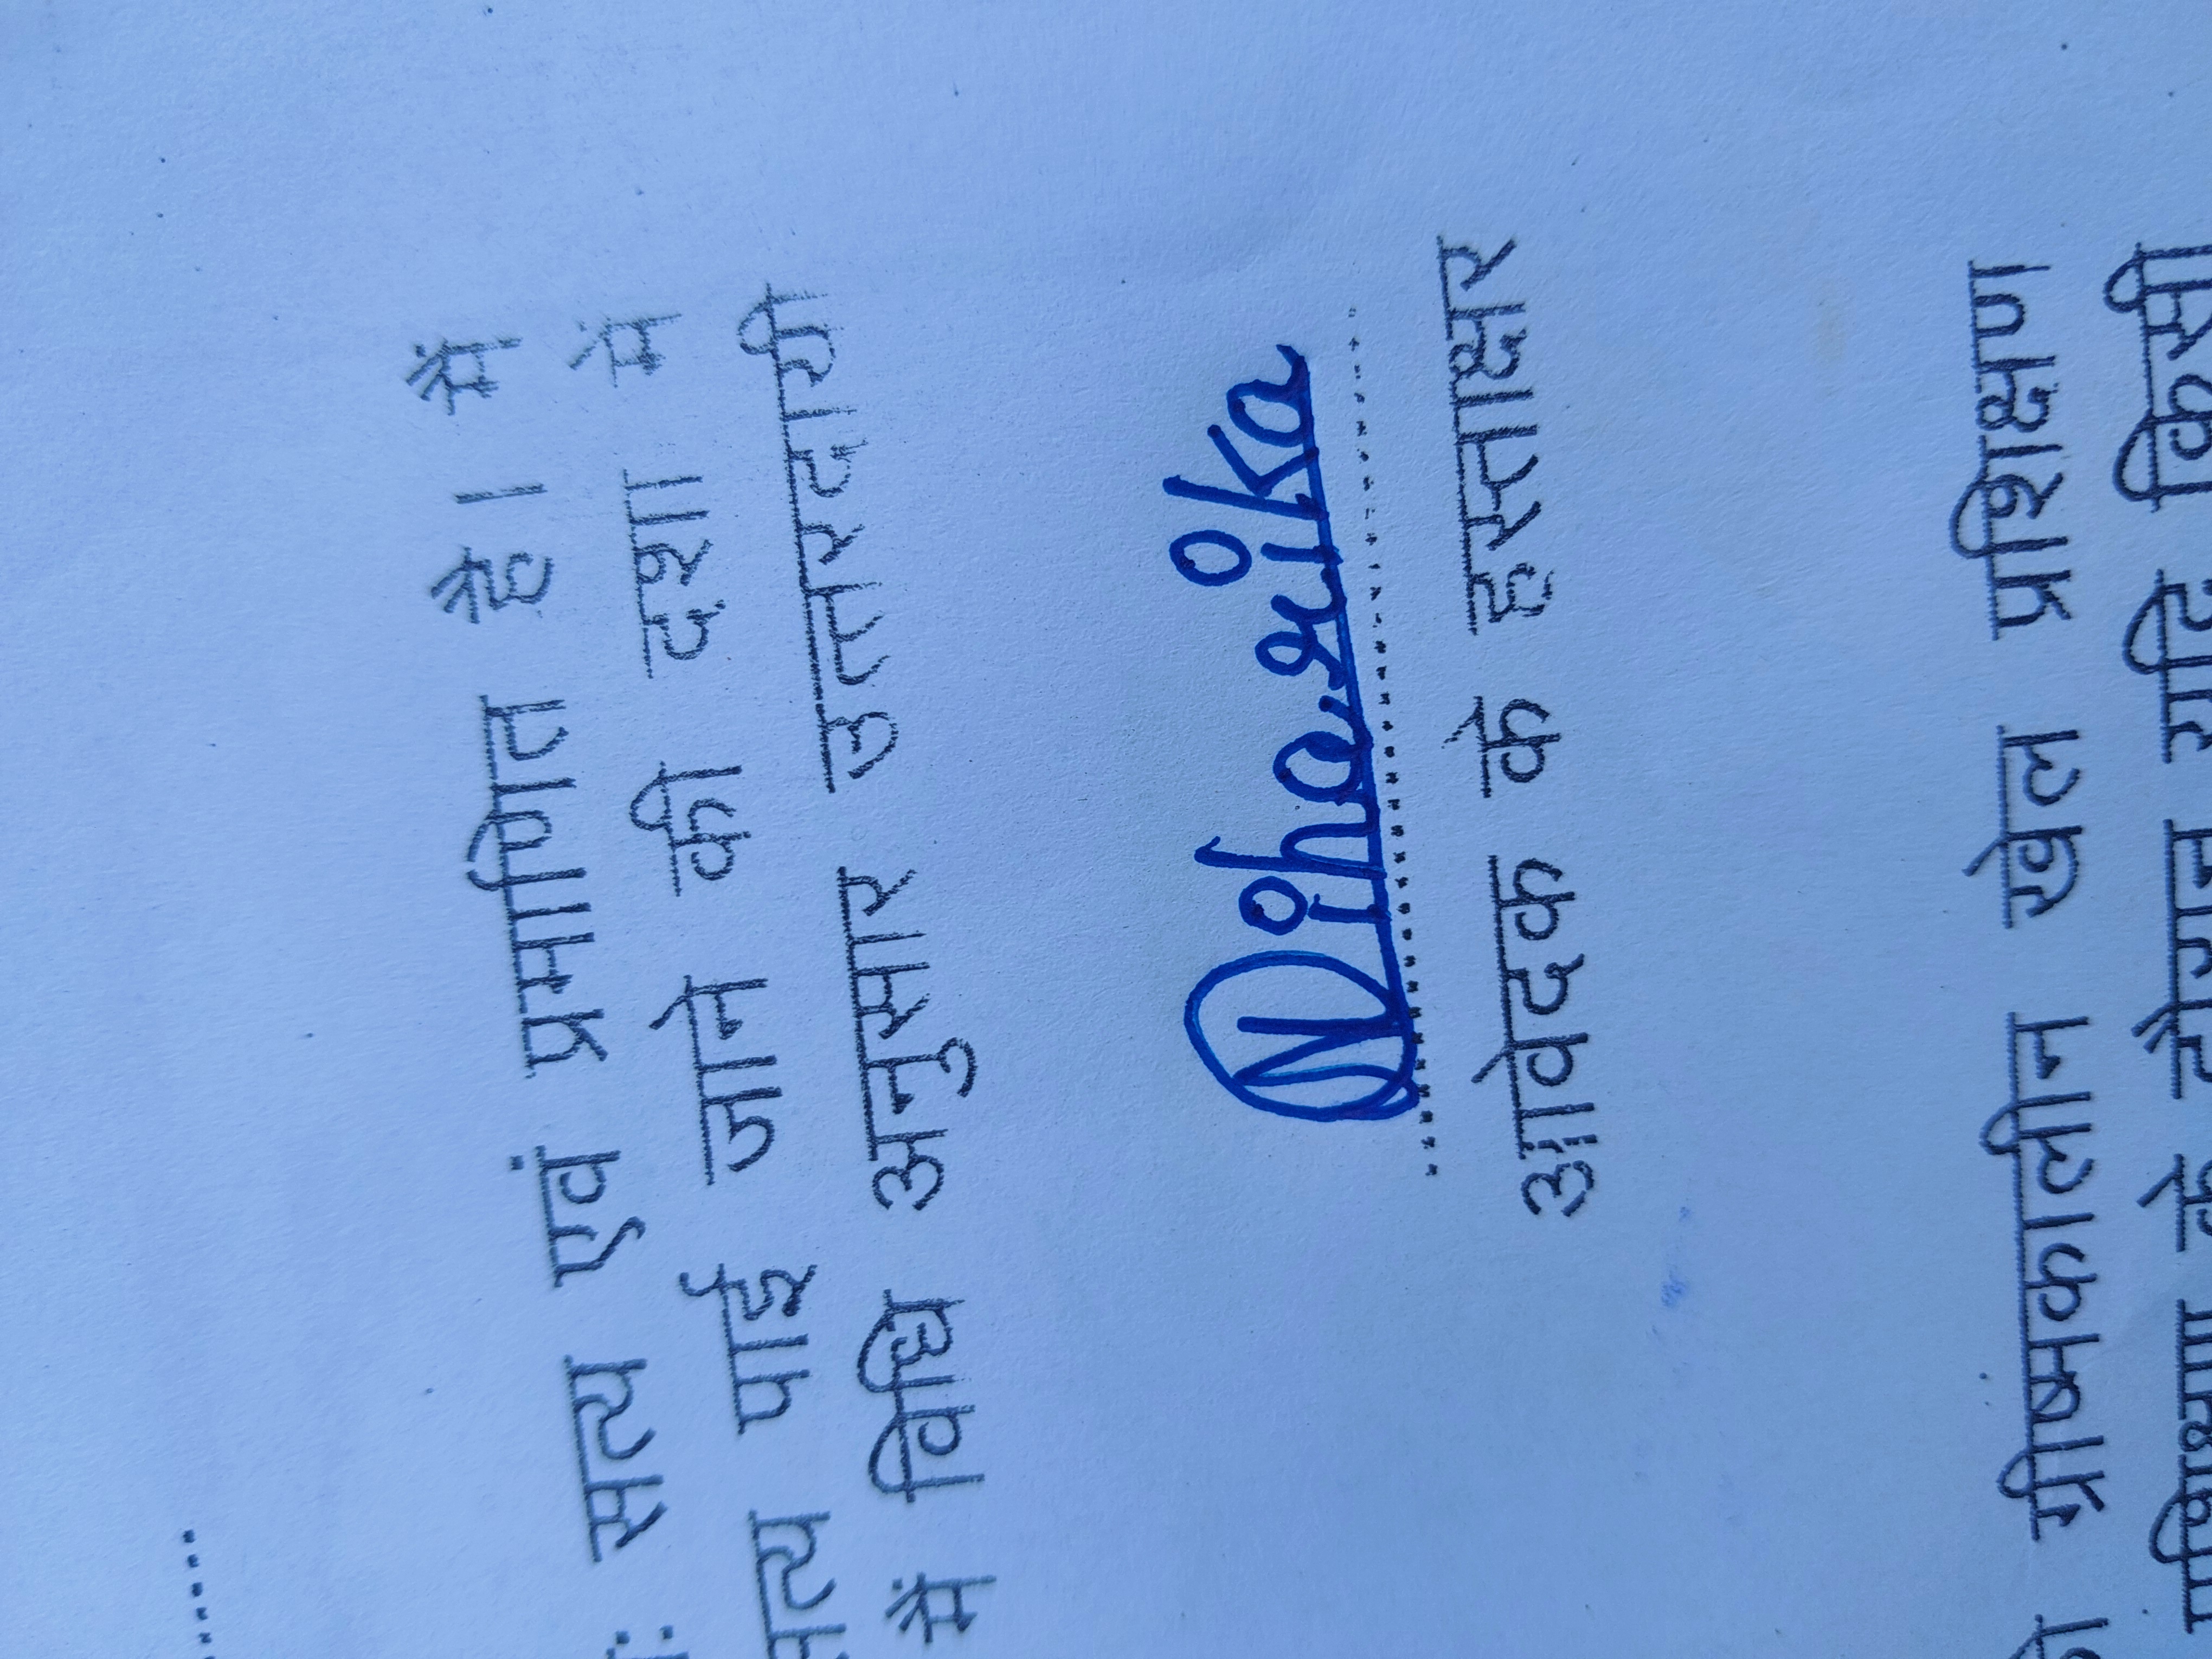 सत्य एवं प्रमाणित है। मैं
पाई जाने की दशा में
में विधि अनुसार उत्तरदायी
Niharika
आवेदक के हस्ताक्षर
ग्रीष्मकालीन खेल प्रशिक्षण
के दौरान यदि किसी